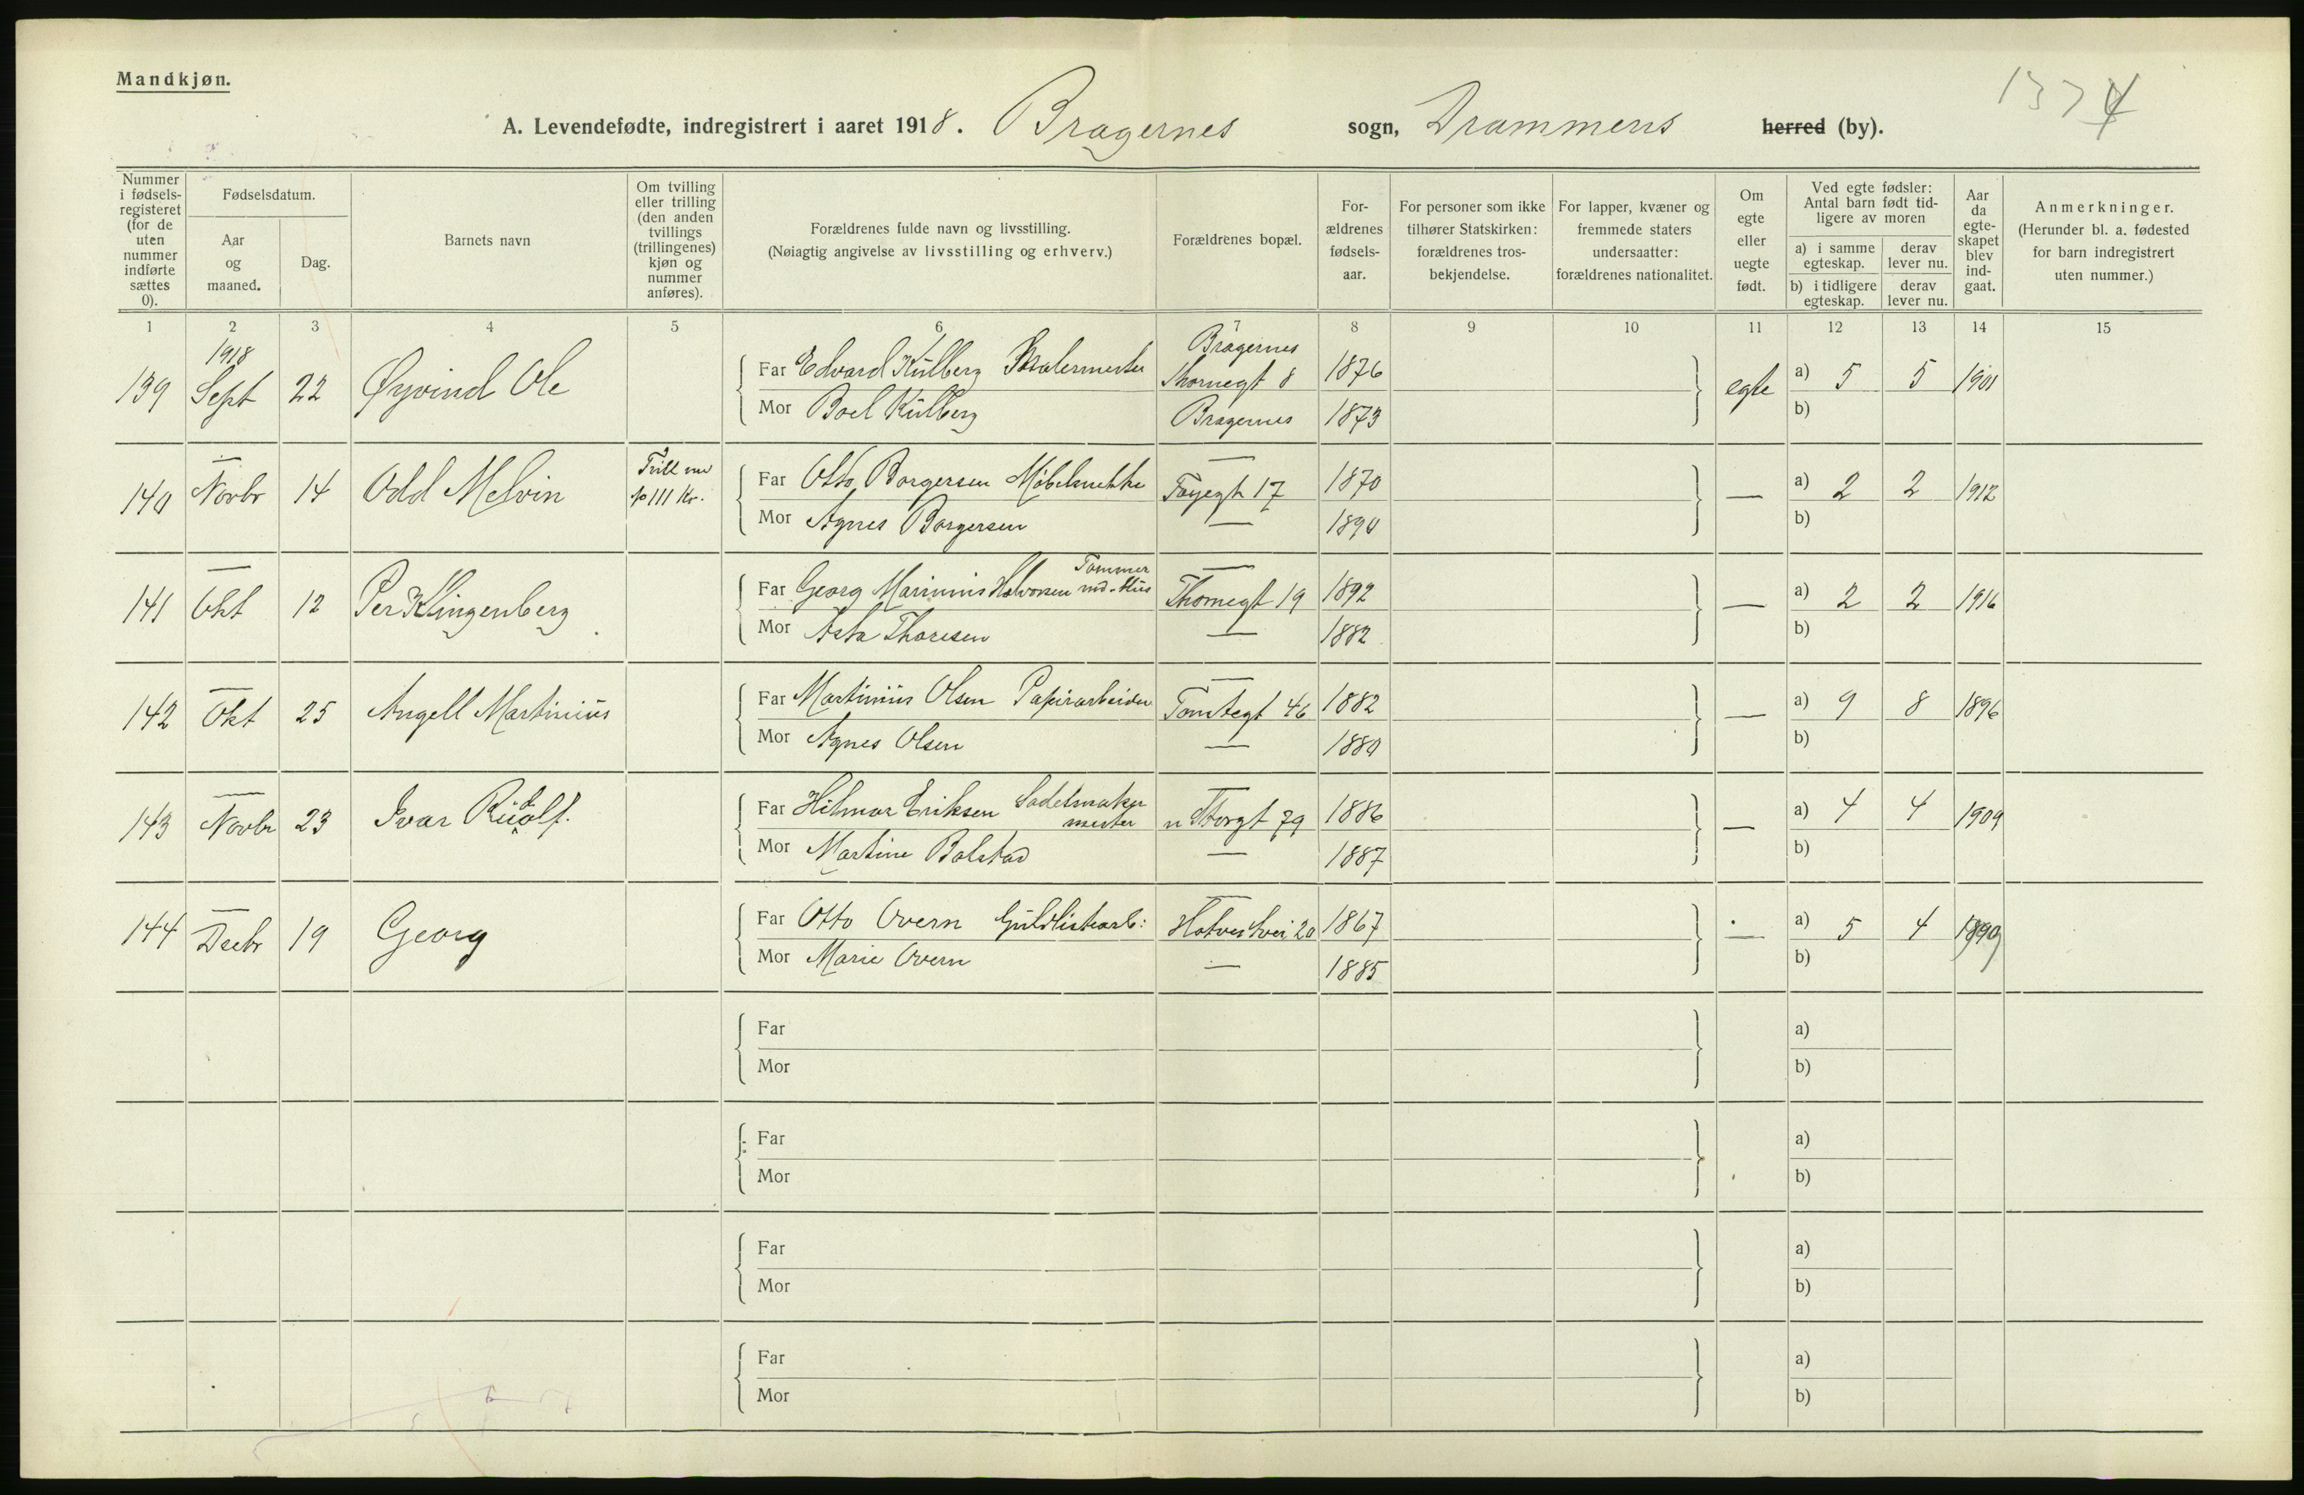 Mandkjøn.
1374
A. Levendefødte, indregistrert i aaret 1918. Bragernes sogn, Drammens herred (by).
Nummer i fødsels-registeret (for de uten nummer indførte sættes 0).
Fødselsdatum.
Aar og maaned.
Dag.
Barnets navn
Om tvilling eller trilling (den anden tvillings (trillingenes) kjøn og nummer anføres).
Forældrenes fulde navn og livsstilling.
(Nøiagtig angivelse av livsstilling og erhverv.)
Forældrenes bopæl.
For-ældrenes fødsels-aar.
For personer som ikke tilhører Statskirken: forældrenes tros-bekjendelse.
For lapper, kvæner og fremmede staters undersaatter: forældrenes nationalitet.
Om egte eller uegte født.
Ved egte fødsler: Antal barn født tid-ligere av moren
a) i samme egteskap.
derav lever nu.
b) i tidligere egteskap.
derav lever nu.
Aar da egte-skapet blev ind-gaat.
Anmerkninger.
(Herunder bl. a. fødested for barn indregistrert uten nummer.)
1 2 3 4 5 6 7 8 9 10 11 12 13 14 15
1918
139 Sept 22 Øyvind Ole Far Edvard Külberg Malermester Bragernes Thornegt 8 1876 egte a) 5 5 1901
Mor Boel Külberg Bragernes 1873 b)
140 — Novbr 14 Odd Melvin Tvill Far Otto Borgersen Møbelsnekke — Fayegt 17 1870 — a) 2 2 1912
Mor Agnes Borgersen — 1890 b)
141 — Okt 12 Per Klingenberg Far Georg Marinius Halvorsen Tømmer — Thornegt 19 1892 — a) 2 2 1916
Mor Asta Thoresen — 1882 b)
142 — Okt 25 Angell Martinius Far Martinius Olsen Papirarbeider — Tomtegt 46 1882 — a) 9 8 1896
Mor Agnes Olsen — 1880 b)
143 — Novbr 23 Ivar Rüdolf. Far Hilmar Eriksen Sadelmaker mester n Storgt 79 1886 — a) 4 4 1909
Mor Martine Bolstad — 1887 b)
144 — Decbr 19 Georg Far Otto Overn Güldlistearb: — Hotvedtvei 20 1867 — a) 5 4 1909
Mor Marie Overn — 1885 b)
Far a)
Mor b)
Far a)
Mor b)
Far a)
Mor b)
Far a)
Mor b)